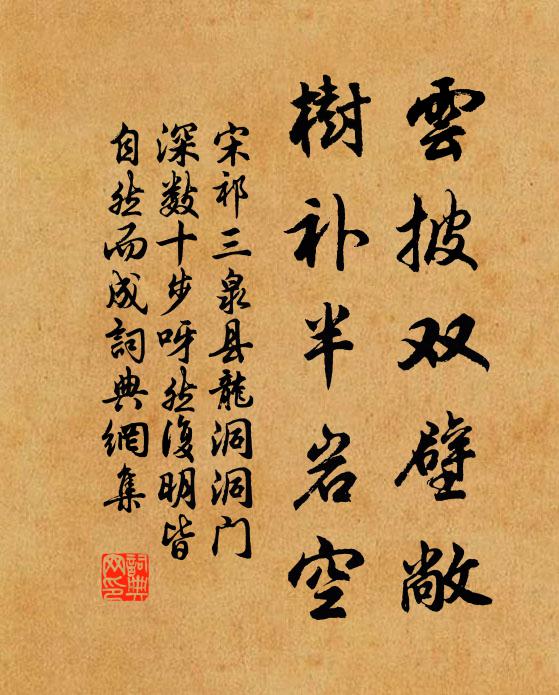 雲披双壁敞
樹补半岩空
宋祁三泉县龍洞洞门
深数十步呀然復明皆
自然而成詞典網集
詞典网印